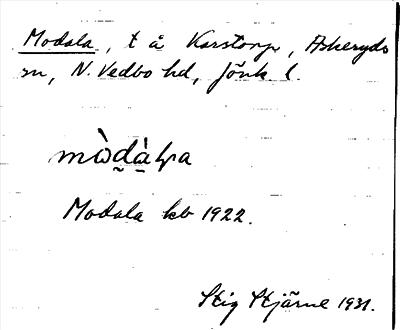 Modala, t å Karstorp, Askeryds
sn, N. Vedbo hd, Jönk. l.
mὼdàḷa
Modala kb 1922.
Stig Stjärne 1931.